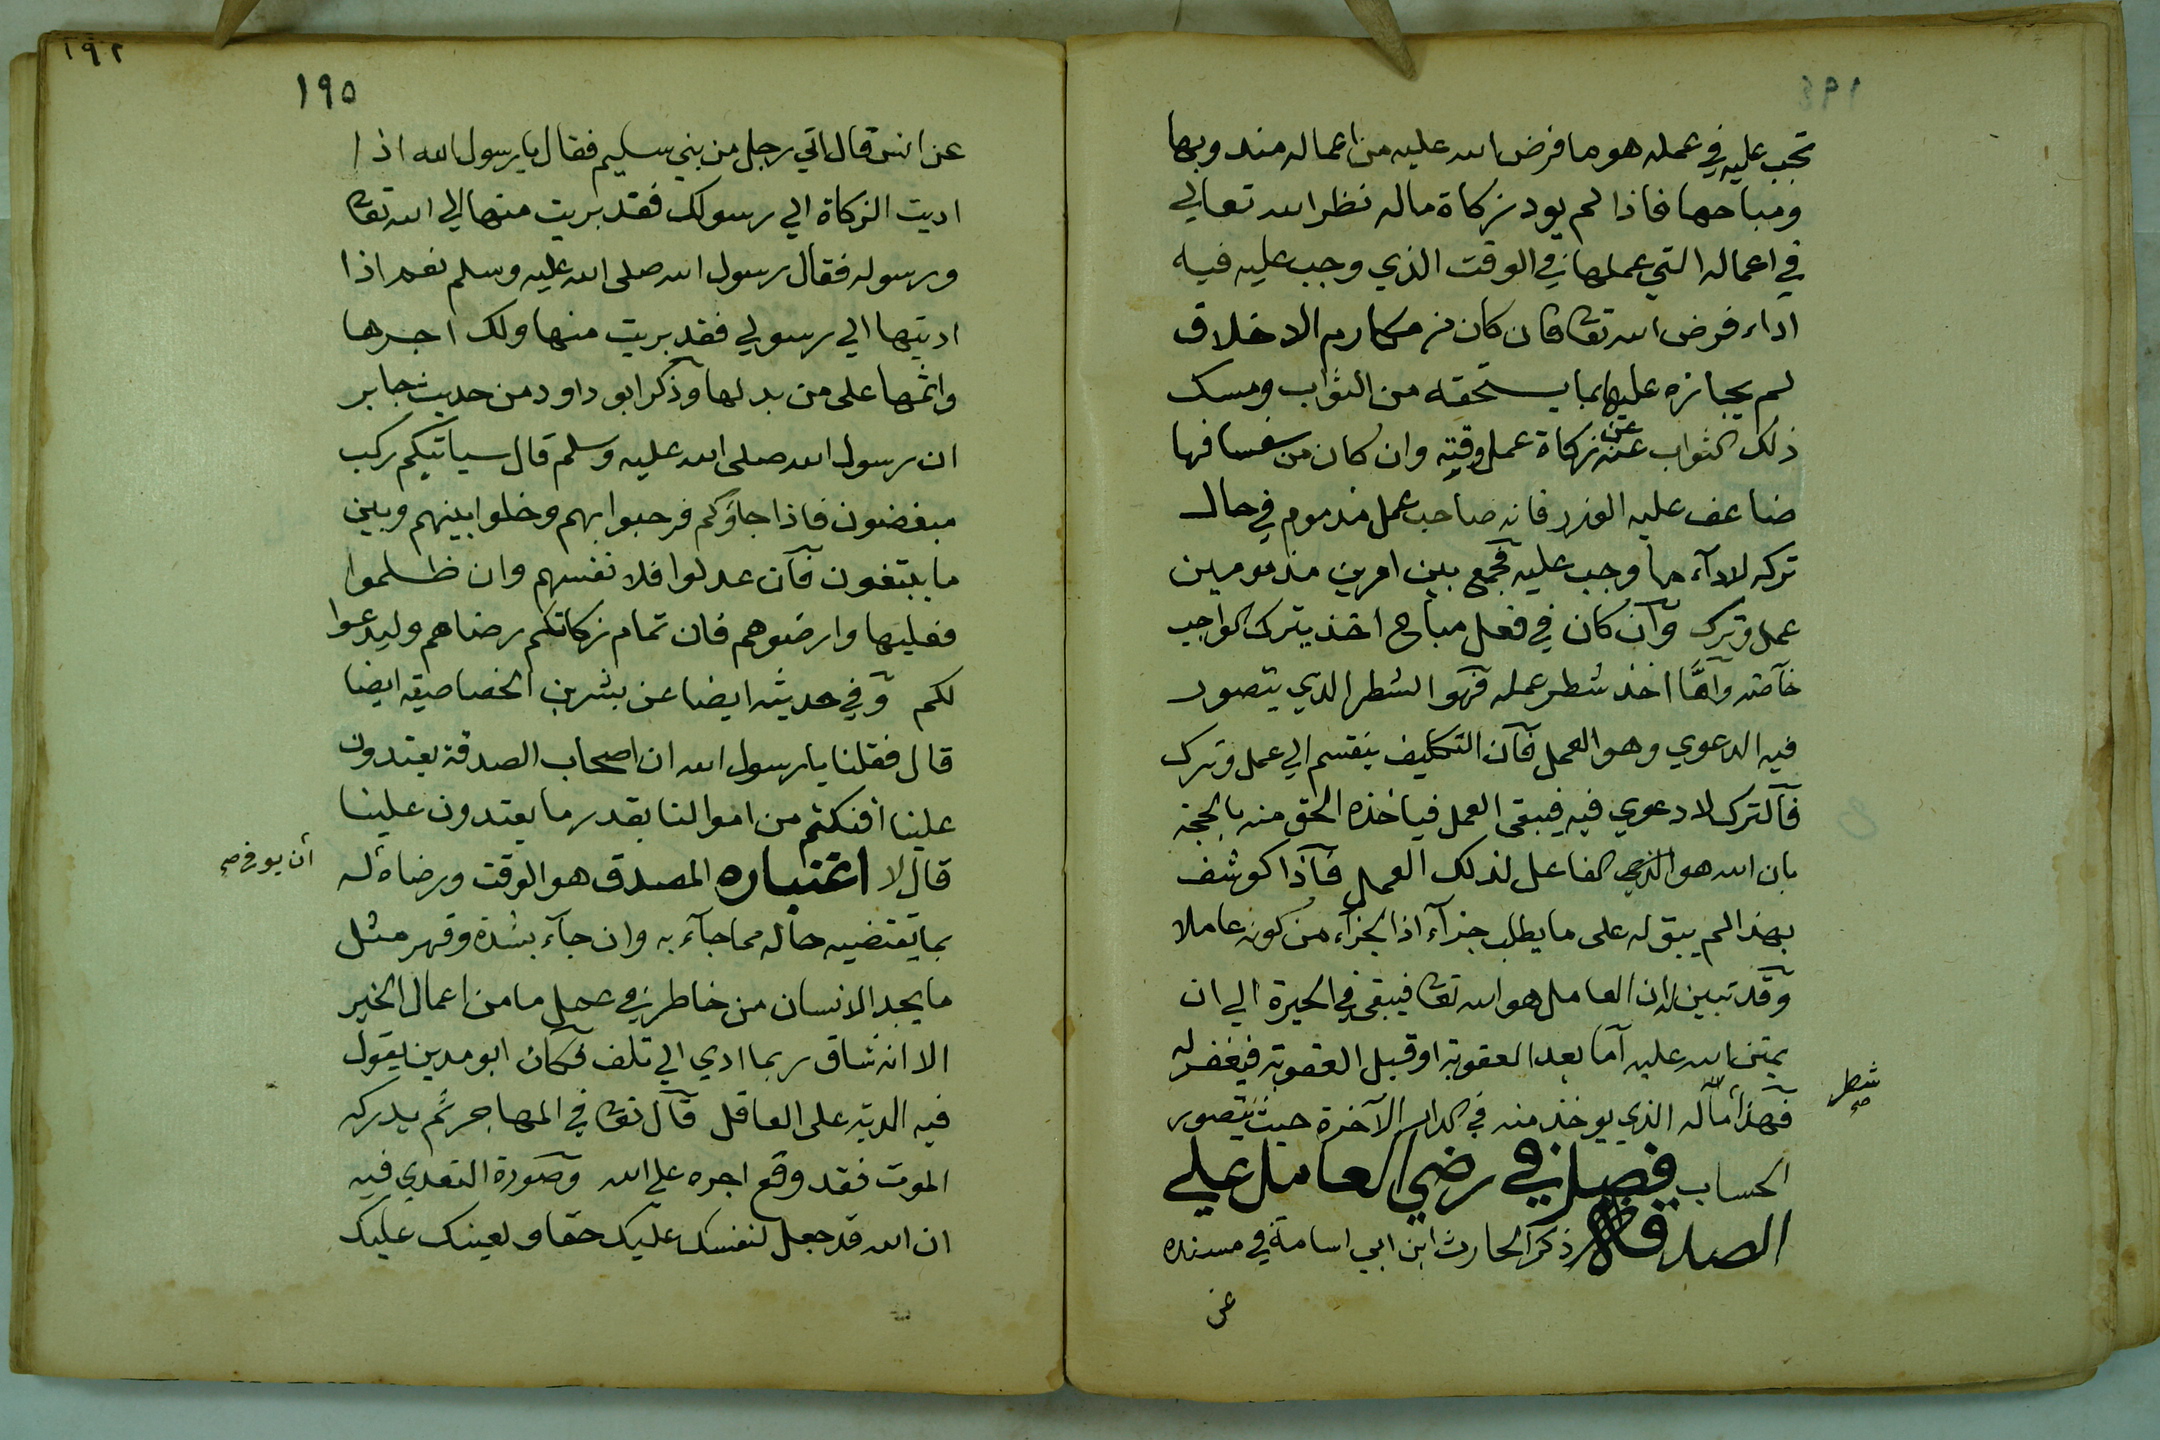 ١٩٤
تجب عليه في عمله هو ما فرض الله عليه من اعماله مندوبها
ومباحها فاذا لم يود زكاة ماله نظر الله تعالي
في اعماله التي عملها في الوقت الذي وجب عليه فيه
اداء فرض الله تعا فان كان من مكارم الاخلاق
لم يجازه عليها بما يستحقه من الثواب ومسك
ذلك الثواب عنه عن زكاة عمل وقته وان كان من سفسافها
ضاعف عليه الوزر فانه صاحب عمل مذموم في حال
تركه لادآء ما وجب عليه فجمع بين امرين مذمومين
عمل وترك وان كان في فعل مباح اخذ بترك الواجب
خآصه واما اخذ شطر عمله فهو الشطر الذي يتصور
فيه الدعوي وهو العمل فان التكليف ينقسم الي عمل وترك
فالترك لا دعوي فيه فيبقى العمل فياخذه الحق منه بالحجة
بان الله هو الذي الفاعل لذلك العمل فاذا كوشف
بهذا لم يبق له على ما يطلب جزآء اذ الجزآء من كونه عاملا
وقد تبين له ان العامل هو الله تعا فيبقى في الحيرة الي ان
يمتن الله عليه اما بعد العقوبة او قبل العقوبة فيغفر له
فهذا ماله الذي يوخذ منه في الدار الآخرة حيث يتصور
شطر صح
الحساب فصل في رضي العامل علي
الصدقة ذكر الحارث ابن ابي اسامة في مسنده
عن
١٩٢
١٩٥
عن انس قال اتي رجل من بني سليم فقال يا رسول الله اذا
اديت الزكاة الي رسولك فقد بريت منها الي الله تعا
ورسوله فقال رسول الله صلى الله عليه وسلم نعم اذا
اديتها الي رسولي فقد بريت منها ولك اجرها
واثمها على من بدلها وذكر ابو داود من حديث جابر
ان رسول الله صلى الله عليه وسلم قال سياتيكم ركب
مبغضون فاذا جاؤكم فرحبوا بهم وخلوا بينهم وبين
ما يبتغون فان عدلوا فلانفسهم وان ظلموا
فعليها وارضوهم فان تمام زكاتكم رضاهم وليدعوا
لكم وفي حديثه ايضا عن بشر بن الخصاصية ايضا
قال فقلنا يا رسول الله ان اصحاب الصدقة يعتدون
علينا أفنكتم من اموالنا بقدر ما يعتدون علينا
قال لا اعتباره المصدق هو الوقت ورضاه له
أن يوفي صح
بما يقتضيه حاله مما جآء به وان جآء بشدة وقهر مثل
ما يجد الانسان من خاطر في عمل ما من اعمال الخير
الا انه شاق ربما ادي الي تلف فكان ابو مدين يقول
فيه الدية على العاقل قال تعا في المهاجر ثم يدركه
الموت فقد وقع اجره على الله وصورة التعدي فيه
ان الله قد جعل لنفسك عليك حقا ولعينك عليك